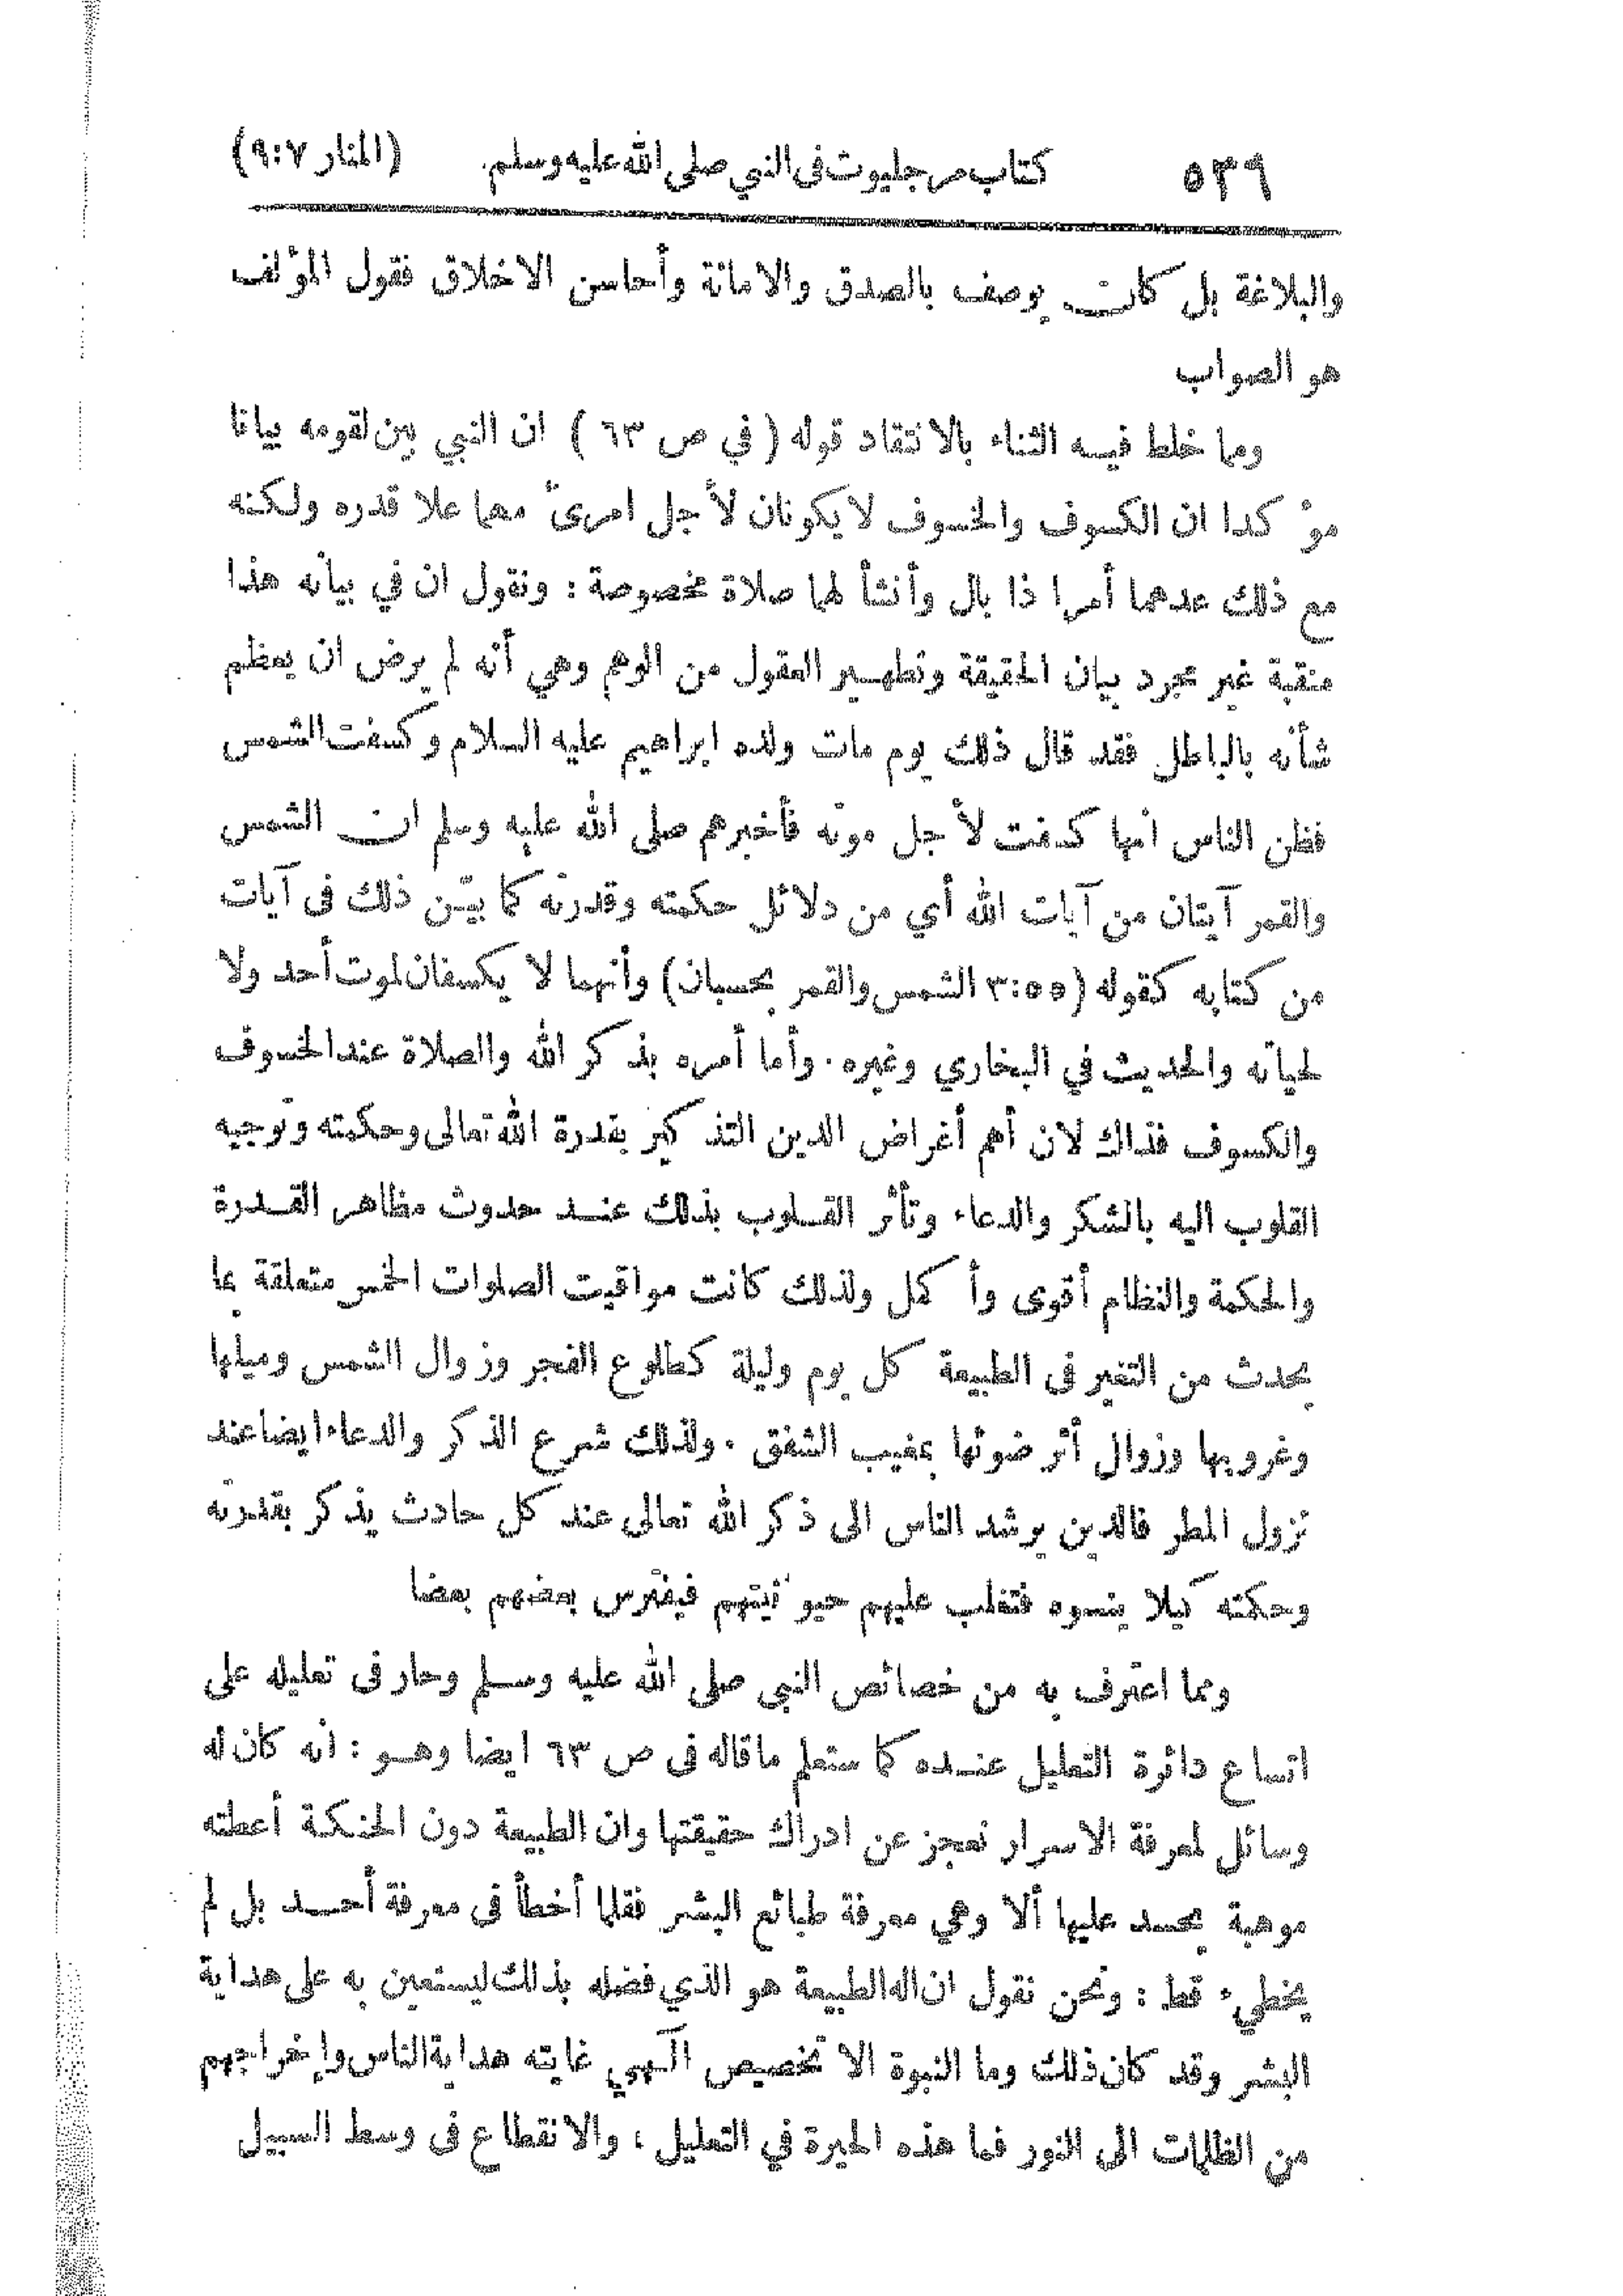 ٥٣٩ كتاب مرجليوث في النبي صلى الله عليه وسلم. (المنار ٩:٧)
والبلاغة بل كان يوصف بالصدق والامانة وأحاسن الاخلاق فقول المؤلف
هو الصواب
ومما خلط فيه الثناء بالانتقاد قوله ( في ص ٦٣ ) ان النبي بين لقومه بيانا
مؤكدا ان الكسوف والخسوف لا يكونان لأجل امرئ مهما علا قدره ولكنه
مع ذلك عدهما أمرا ذا بال وأنشأ لهما صلاة مخصوصة : ونقول ان في بيانه هذا
منقبة غير مجرد بيان الحقيقة وتطهير العقول من الوهم وهي أنه لم يرض ان يعظم
شأنه بالباطل فقد قال ذلك يوم مات ولده ابراهيم عليه السلام وكسفت الشمس
فظن الناس انها كسفت لأجل موته فأخبرهم صلى الله عليه وسلم ان الشمس
والقمر آيتان من آيات الله أي من دلائل حكمته وقدرته كما بيّن ذلك في آيات
من كتابه كقوله (٣:٥٥ الشمس والقمر بحسبان) وأنهما لا يكسفان لموت أحد ولا
لحياته والحديث في البخاري وغيره . وأما أمره بذكر الله والصلاة عند الخسوف
والكسوف فذاك لان أهم أغراض الدين التذكير بقدرة الله تعالى وحكمته وتوجيه
القلوب اليه بالشكر والدعاء وتأثر القلوب بذلك عند حدوث مظاهر القدرة
والحكمة والنظام أقوى وأكمل ولذلك كانت مواقيت الصلوات الخمس متعلقة بما
يحدث من التغير في الطبيعة كل يوم وليلة كطلوع الفجر وزوال الشمس وميلها
وغروبها وزوال أثر ضوئها بمغيب الشفق . ولذلك شرع الذكر والدعاء ايضا عند
نزول المطر فالدين يرشد الناس الى ذكر الله تعالى عند كل حادث يذكر بقدرته
وحكمته كيلا ينسوه فتغلب عليهم حيوانيتهم فيفترس بعضهم بعضا
ومما اعترف به من خصائص النبي صلى الله عليه وسلم وحار في تعليله على
اتساع دائرة التعليل عنده كما ستعلم ما قاله في ص ٦٣ ايضا وهو : انه كان له
وسائل لمعرفة الاسرار نعجز عن ادراك حقيقتها وان الطبيعة دون الحنكة أعطته
موهبة يحسد عليها ألا وهي معرفة طبائع البشر فقلما أخطأ في معرفة أحد بل لم
يخطيء قط : ونحن نقول ان اله الطبيعة هو الذي فضله بذلك ليستعين به على هداية
البشر وقد كان ذلك وما النبوة الا تخصيص آلهي غايته هداية الناس وإخراجهم
من الظلمات الى النور فما هذه الحيرة في التعليل ، والانقطاع في وسط السبيل